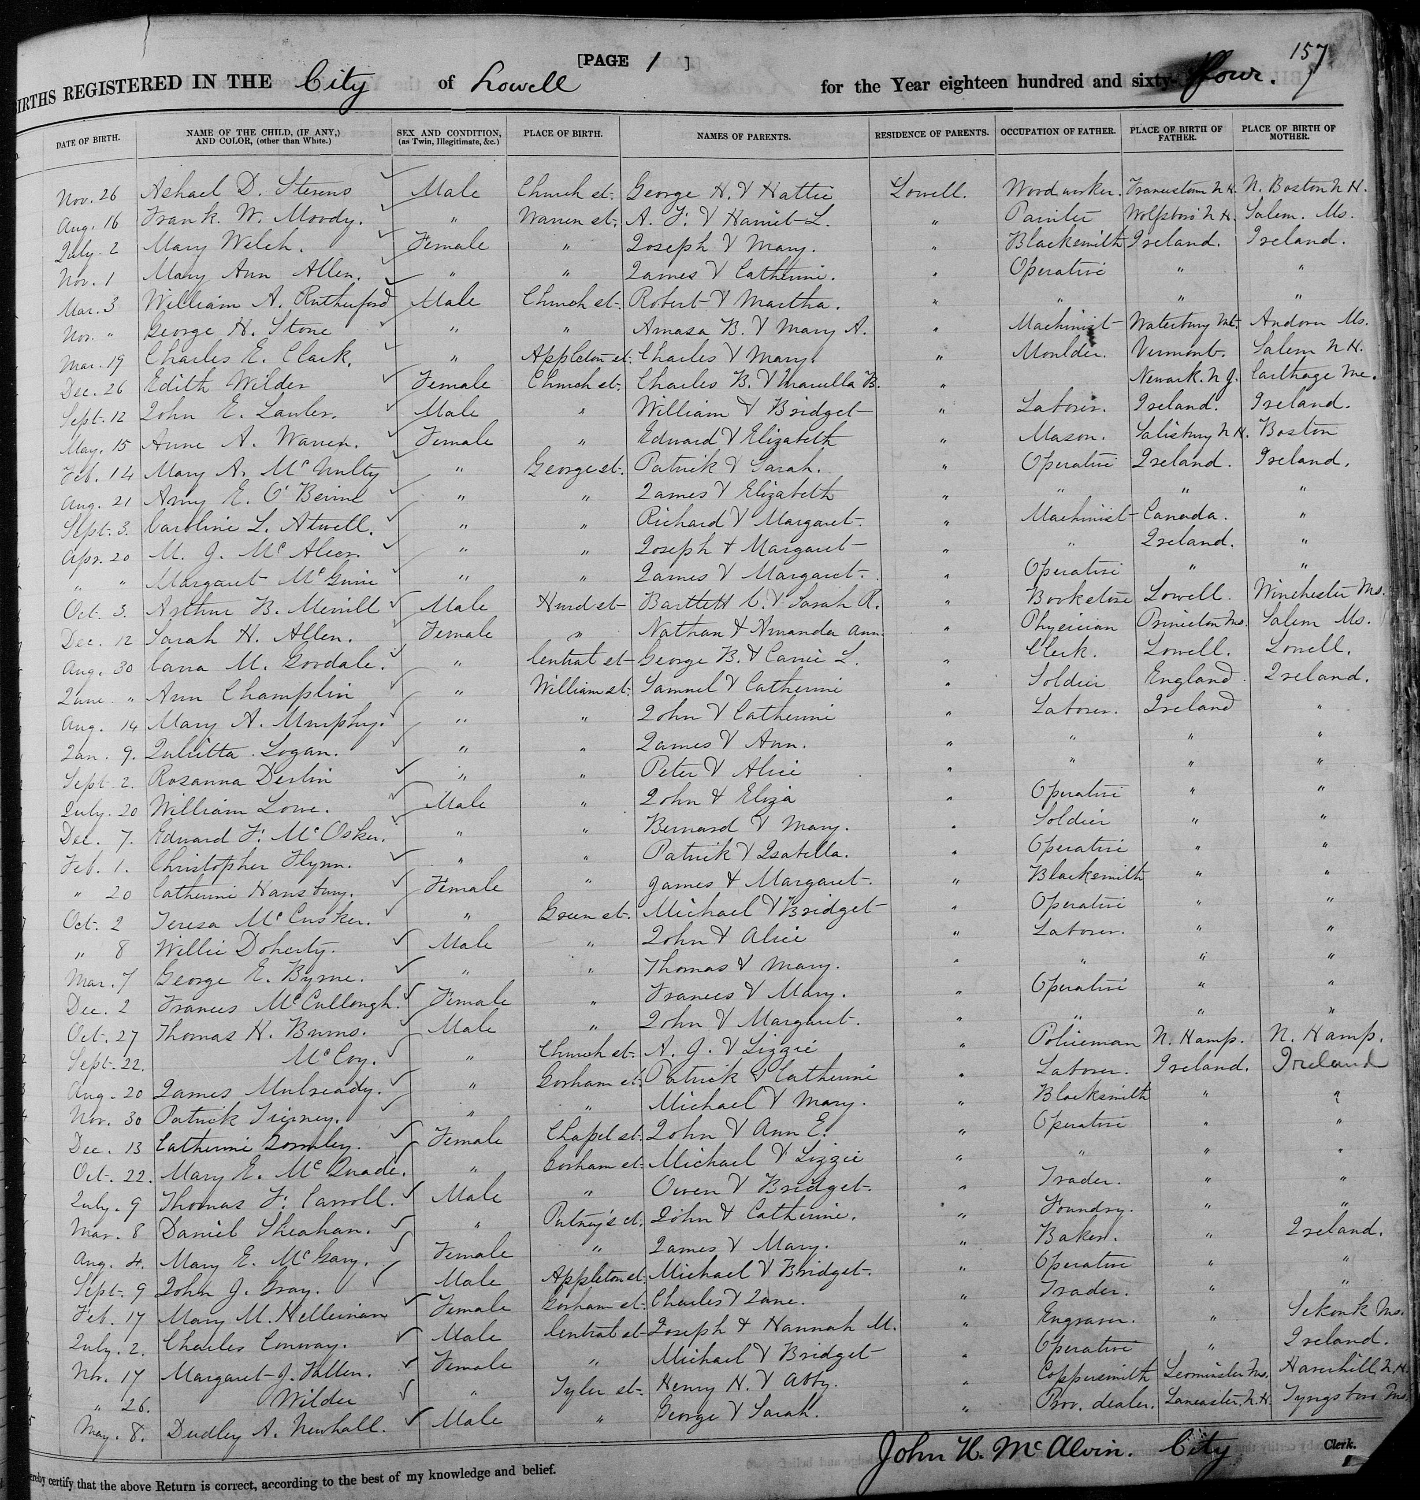 157
[PAGE 1 ]
BIRTHS REGISTERED IN THE City of Lowell for the Year eighteen hundred and sixty- Four.
DATE OF BIRTH. NAME OF THE CHILD, (IF ANY,) AND COLOR, (other than White.) SEX AND CONDITION, (as Twin, Illegitimate, &c.) PLACE OF BIRTH. NAMES OF PARENTS. RESIDENCE OF PARENTS. OCCUPATION OF FATHER. PLACE OF BIRTH OF FATHER. PLACE OF BIRTH OF MOTHER.
Nov. 26 Ashael D. Stevens ✓ Male Church st. George H. & Hattie Lowell. Wood worker. Francestown N.H. N. Boston N.H.
Aug. 16 Frank W. Moody. ✓ " Warren st. A. F. & Harriet L. " Painter Wolfboro' N.H. Salem. Ms.
July. 2 Mary Welch. ✓ Female " Joseph & Mary. " Blacksmith Ireland. Ireland.
Nov. 1 Mary Ann Allen. ✓ " " James & Catherine. " Operative " "
Mar. 3 William A. Rutherford ✓ Male Church st. Robert & Martha. " " " "
Nov. " George H. Stone ✓ " " Amasa B. & Mary A. Machinist Waterbury Vt. Andover Ms.
Mar. 19 Charles E. Clark. ✓ " Appleton st. Charles & Mary. " Moulder. Vermont. Salem N.H.
Dec. 26 Edith Wilder ✓ Female Church st. Charles B. & Marcella B. " Newark. N.J. Carthage Me.
Sept. 12 John E. Lawler. ✓ Male " William & Bridget " Laborer. Ireland. Ireland.
May. 15 Anne A. Warren. ✓ Female " Edward & Elizabeth " Mason. Salisbury N.H. Boston
Feb. 14 Mary A. McNulty ✓ " George st. Patrick & Sarah. " Operative Ireland. Ireland.
Aug. 21 Amy E. O'Beirne ✓ " " James & Elizabeth " " " "
Sept. 3. Caroline L. Atwell. ✓ " " Richard & Margaret " Machinist Canada. "
Apr. 20 M. J. McAleer. ✓ " " Joseph & Margaret " " Ireland. "
" " Margaret McGuire ✓ " " James & Margaret. " Operative " "
Oct. 3 Arthur B. Merrill ✓ Male Hurd st Bartlett C. & Sarah A. " Bookstore Lowell. Winchester Ms.
Dec. 12 Sarah H. Allen. ✓ Female " Nathan & Amanda Ann. " Physician Princeton Ms. Salem Ms.
Aug. 30 Cara M. Goodale. ✓ " Central st George B. & Carrie L. " Clerk. Lowell. Lowell.
June. " Ann Champlin ✓ " William st. Samuel & Catherine " Soldier England. Ireland.
Aug. 14 Mary A. Murphy. ✓ " " John & Catherine " Laborer. Ireland "
Jan. 9. Julietta Logan. ✓ " " James & Ann. " " " "
Sept. 2. Rosanna Devlin ✓ " " Peter & Alice " " " "
July. 20 William Lowe. ✓ Male " John & Eliza " Operative " "
Dec. 7. Edward F. McOsker. ✓ " " Bernard & Mary. " Soldier " "
Feb. 1. Christopher Flynn. ✓ " " Patrick & Isabella. " Operative " "
" 20 Catherine Hansbury. ✓ Female " James & Margaret. " Blacksmith " "
Oct. 2 Teresa McCusker. ✓ " Green st. Michael & Bridget " Operative " "
" 8 Willie Doherty. ✓ Male " John & Alice " Laborer. " "
Mar. 7 George E. Byrne. ✓ " " Thomas & Mary. " " " "
Dec. 2 Frances McCullough. ✓ Female " Frances & Mary. " Operative " "
Oct. 27 Thomas H. Burns. ✓ Male " John & Margaret. " " " "
Sept. 22. McCoy. ✓ " Church st. A. J. & Lizzie " Policeman N. Hamp. N. Hamp.
Aug. 20 James Mulready. ✓ " Gorham st. Patrick & Catherine " Laborer. Ireland. Ireland
Nov. 30 Patrick Tierney. ✓ " " Michael & Mary. " Blacksmith " "
Dec. 13 Catherine Gormley. ✓ Female Chapel st. John & Ann E. " Operative " "
Oct. 22. Mary E. McQuade. ✓ " Gorham st. Michael & Lizzie " " " "
July. 9 Thomas F. Carroll. ✓ Male " Owen & Bridget. " Trader. " "
Mar. 8 Daniel Sheahan. ✓ " Putney's ct. John & Catherine. " Foundry. " "
Aug. 4. Mary E. McGary. ✓ Female " James & Mary. " Baker. " Ireland.
Sept. 9 John J. Gray. ✓ Male Appleton st. Michael & Bridget. " Operative " "
Feb. 17 Mary M. Helleinan ✓ Female Gorham st. Charles & Jane. " Trader. " "
July. 2. Charles Conway. ✓ Male Central st Joseph & Hannah M. " Engraver. " Sekonk Ms.
Nov. 17 Margaret J. Fallen. ✓ Female " Michael & Bridget " Operative " Ireland.
" 26. Wilder ✓ " Tyler st. Henry H. & Abby. " Coppersmith Leominster Ms. Haverhill N.H.
May. 8. Dudley A. Newhall. ✓ Male " George & Sarah. " Prov. dealer. Lancaster, N.H. Tyngsboro Ms.
John H. McAlvin. City Clerk.
hereby certify that the above Return is correct, according to the best of my knowledge and belief.